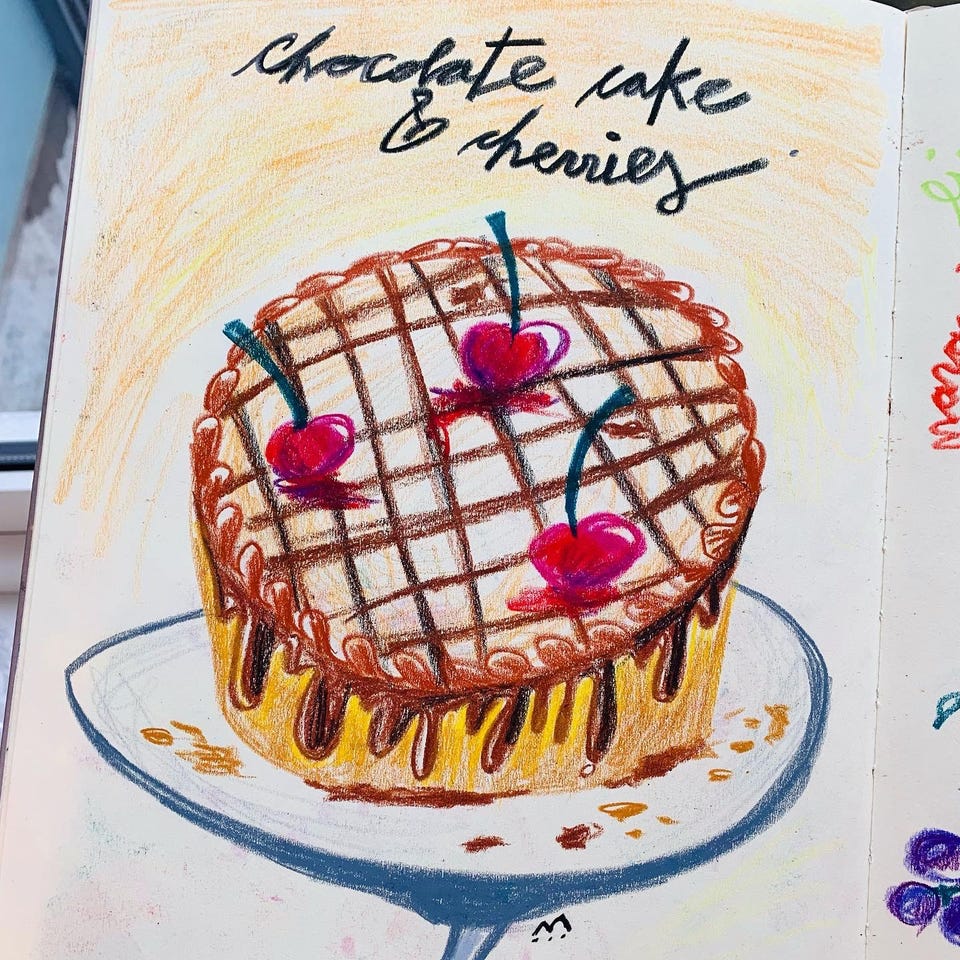 chocolate cake
& cherries
M